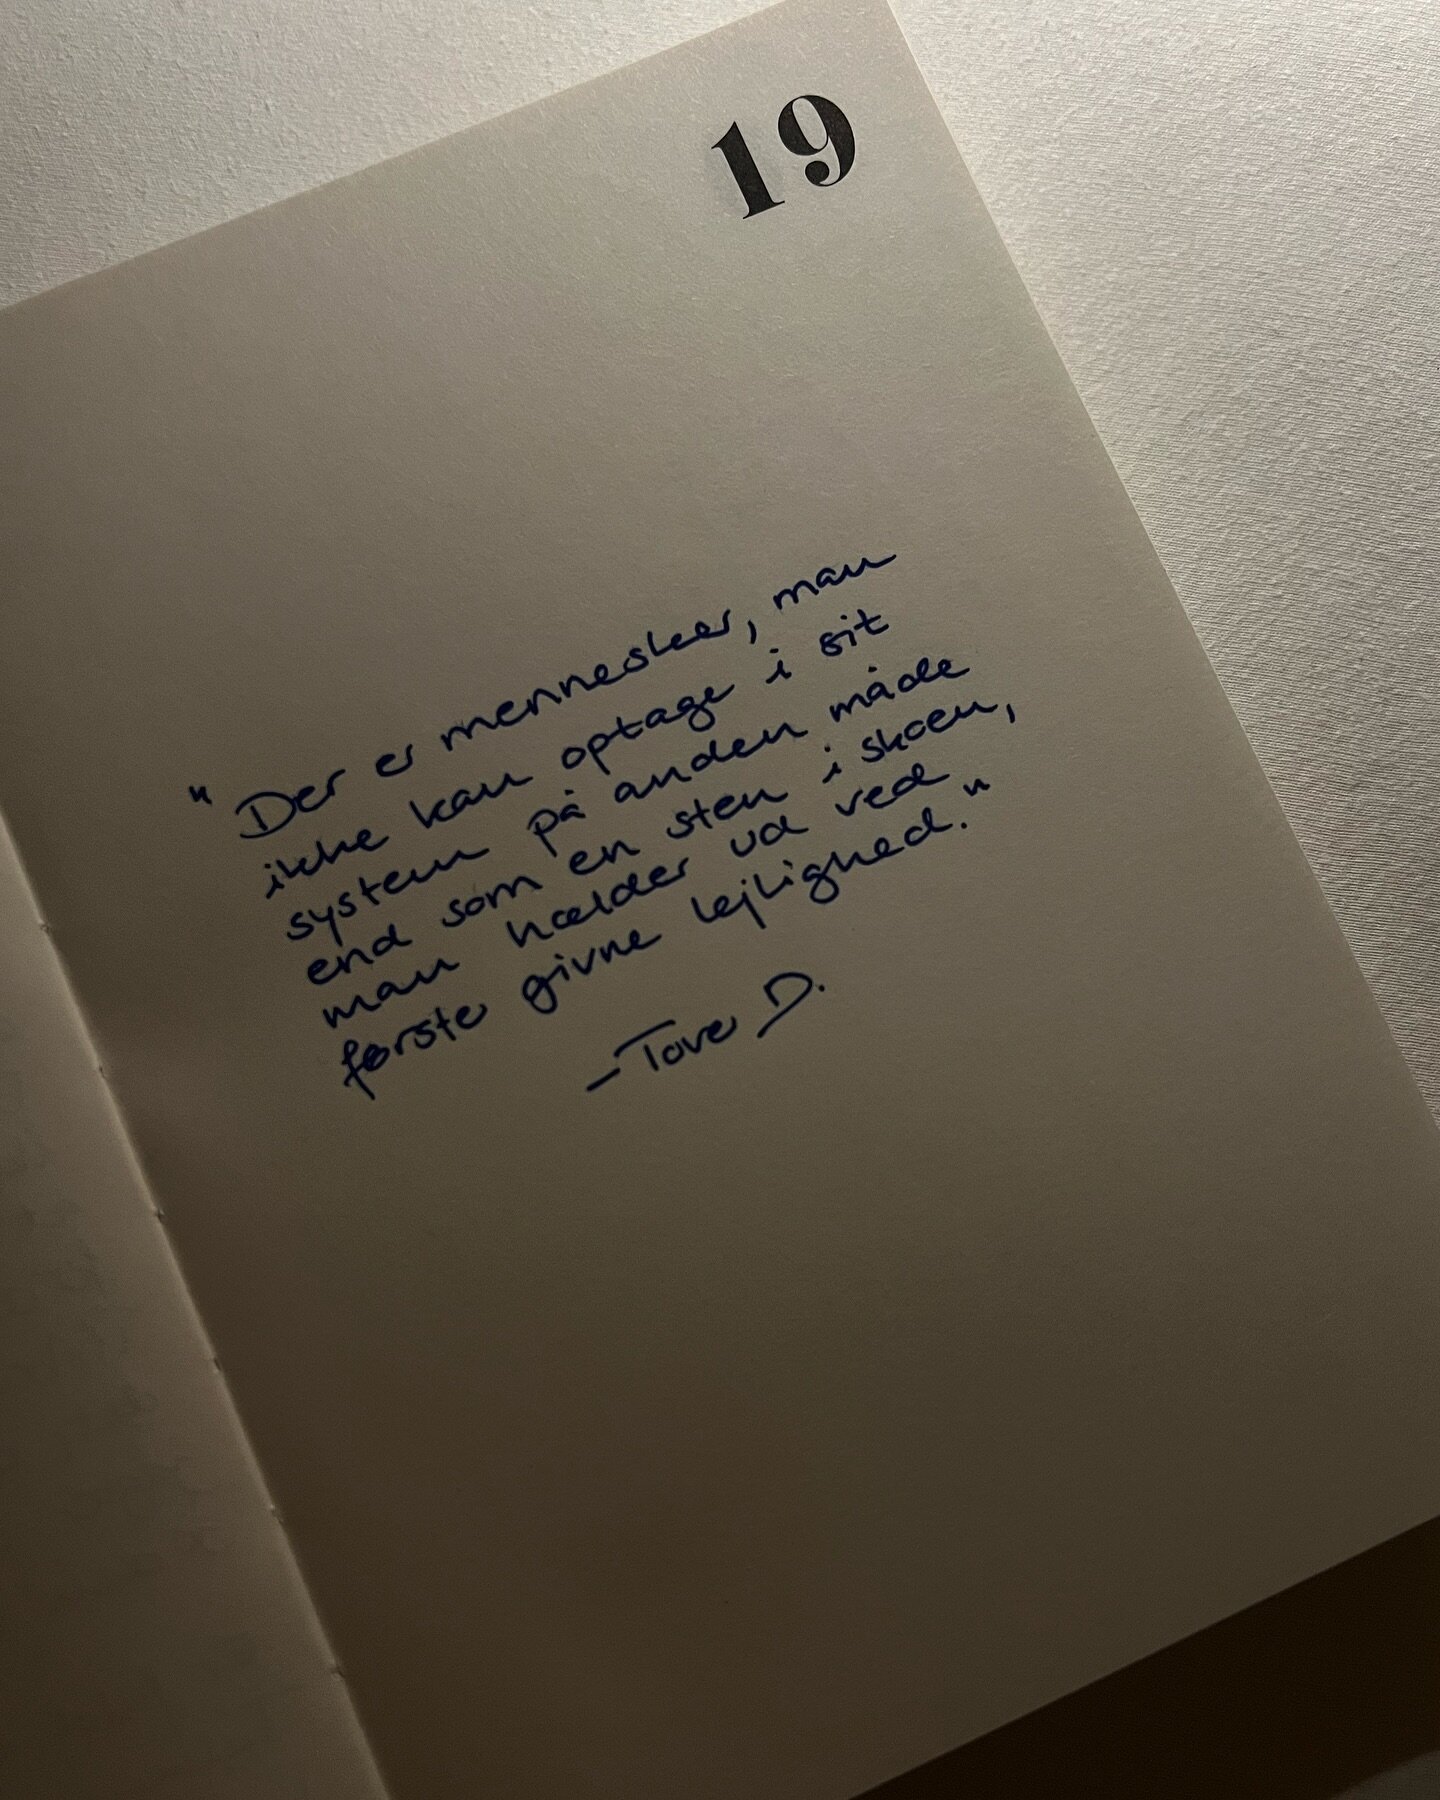 19
"Der er mennesker, man
ikke kan optage i sit
system på anden måde
end som en sten i skoen,
man hælder ud ved
første givne lejlighed."
-Tove D.